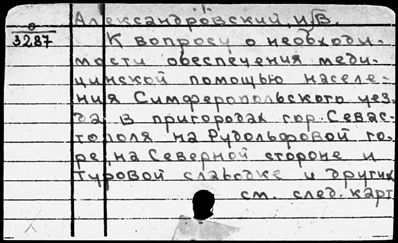 Александровский, И. В.
О
3287
К вопросу о необходи-
мости обеспечения меди-
цинской помощью населе-
ния Симферопольского уез-
да в пригородах гор. Севас-
тополя на Рудольфовой го-
ре, на Северной стороне и
Туровой слабодке и других
см. след. карт